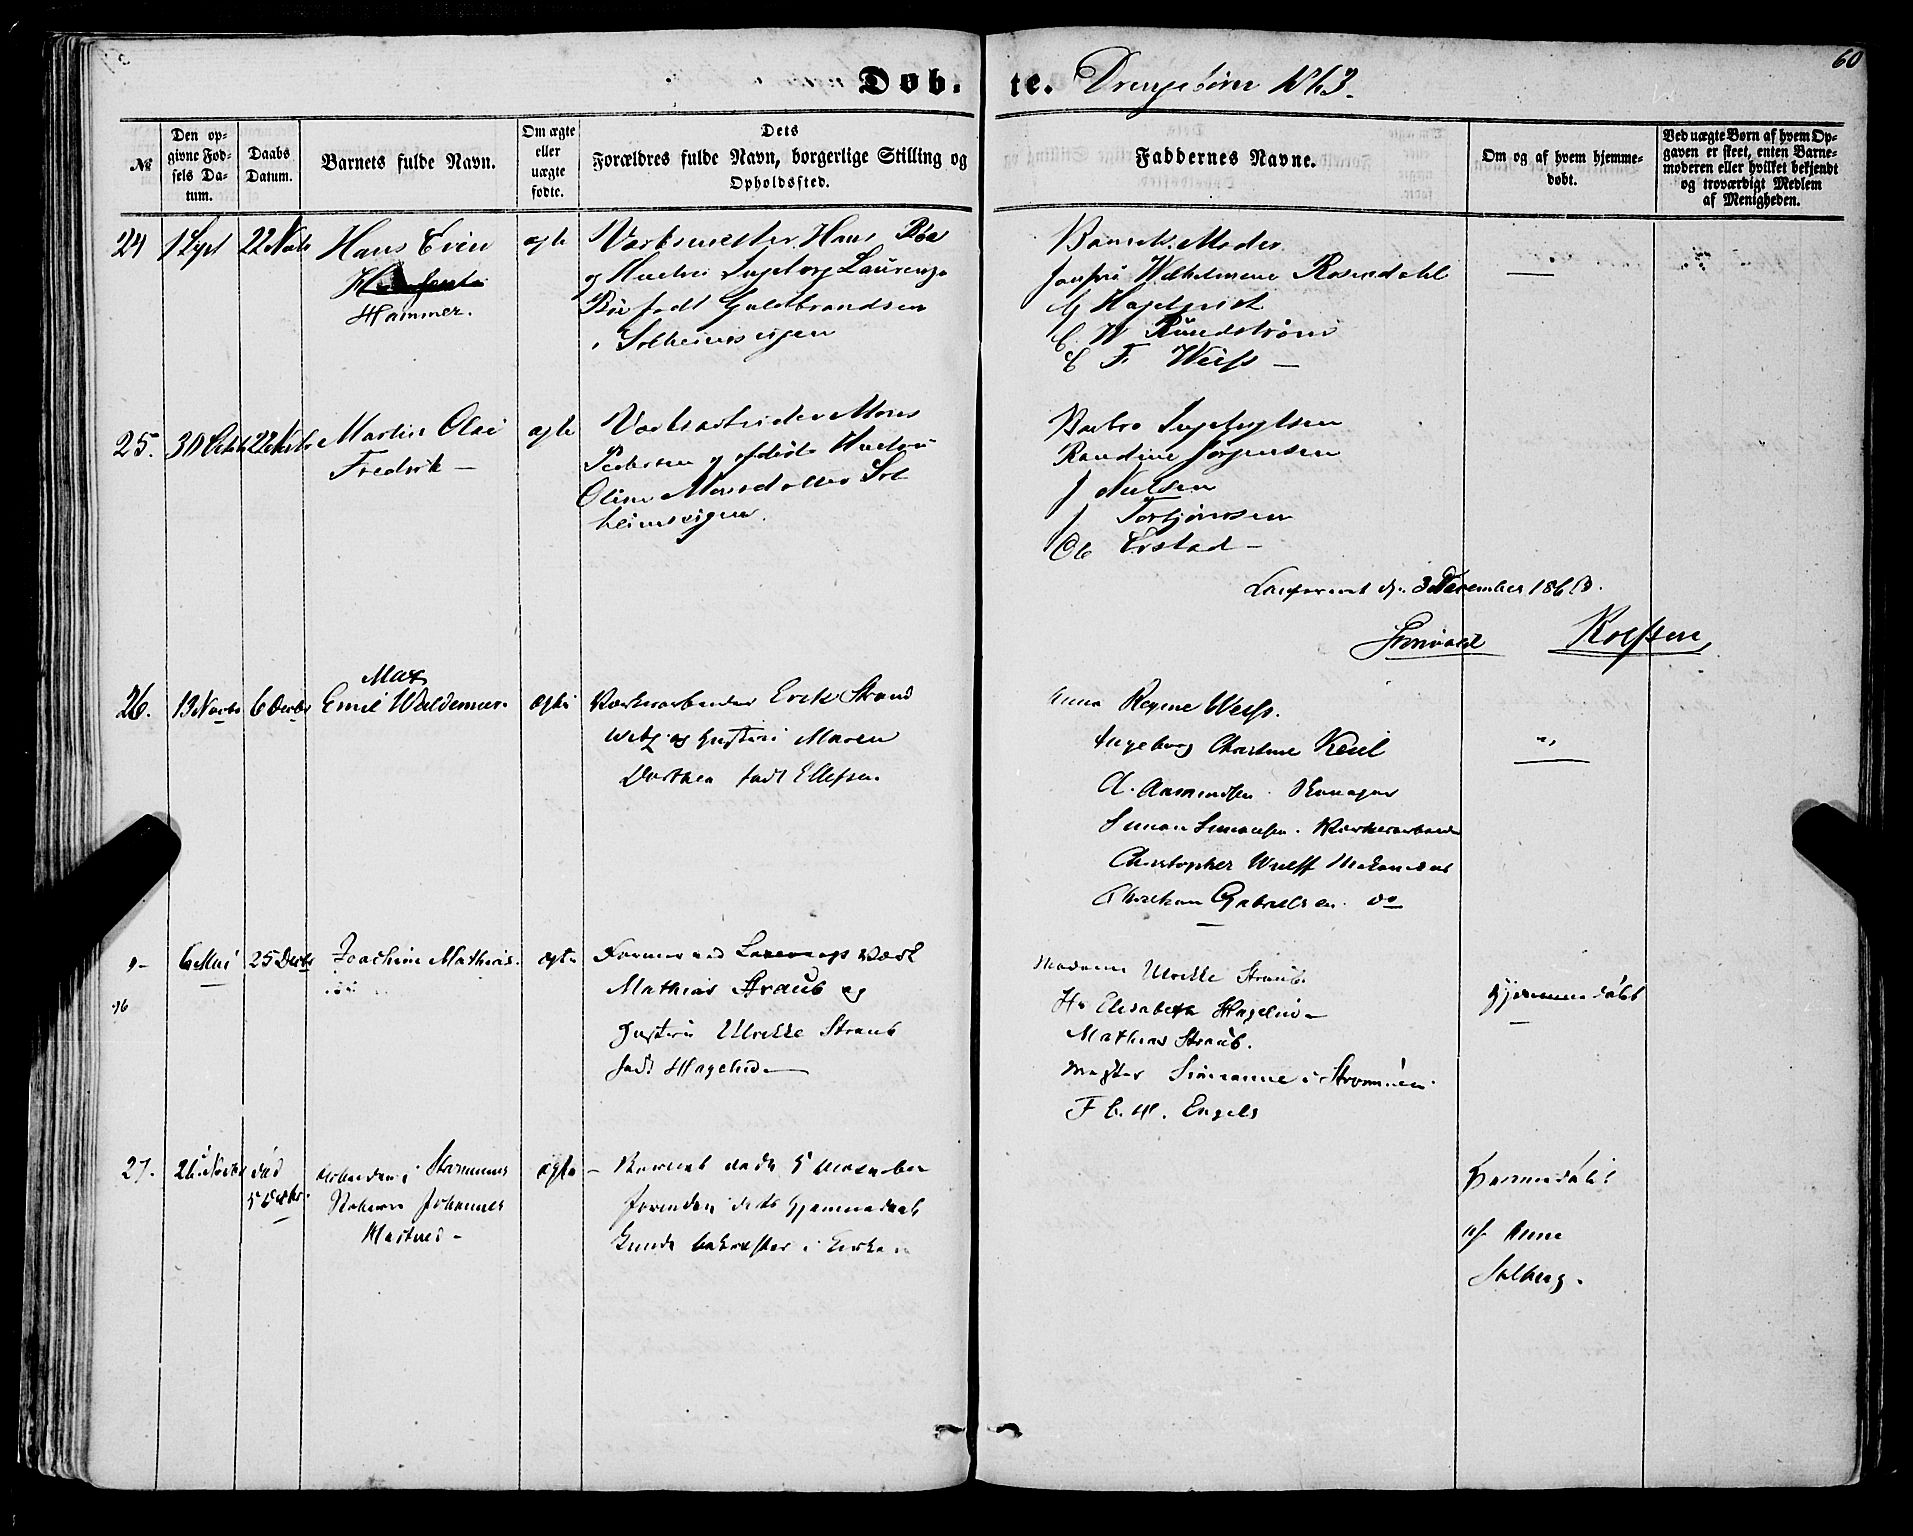 60
Døb- te. Drengebørn 1863.
№
Den op-
givne Fød-
sels Da-
tum.
Daabs
Datum.
Barnets fulde Navn.
Om ægte
eller
uægte
fødte.
Dets
Forældres fulde Navn, borgerlige Stilling og
Opholdssted.
Faddernes Navne.
Om og af hvem hjemme-
døbt.
Ved uægte Børn af hvem Op-
gaven er skeet, enten Barne-
moderen eller hvilket bekjendt
og troværdigt Medlem
af Menigheden.
24 1 Sept 22 Novb
Hans Even
Hammer.
ægte
Værksmester Hans Bøe
og Hustru Ingeborg Laurenza
Bøe født Guldbrandsen
i Solheimsvigen
Barnets Moder
Jomfru Wilhelmine Rosendahl
G Hagelqvist
C. W Rundstrøm
C F Weiss —
25. 30 Octb 22 Novb
Martin Olai
Fredrik —
ægte
Værksarbeider Mons
Pedersen og Hustru
Oline Monsdatter Sol
heimsvigen.
Barbro Ingebrigtsen
Randine Jørgensen
J Nielsen
J Torbjørnsen
Ole Erstad —
Confereret d. 3 December 1863.
Grønvold Rolfsen
26. 13 Novbr 6 Decbr
Max
Emil Waldemar.
ægte
Værksarbeider Erik Strand
og Hustru Maren
Dorthea født Ellefsen
Anna Regine Weiss.
Ingeborg Christine Keul
A. Aamundsen
Simon Simonsen. Værksarbeider
Christopher Wulff
Gabrielsen. do
6 Mai 25 Decbr
Joachim Mathias.
ægte
Formand Laxevaags Værk
Mathias Straub og
Hustru Ulrikke Straub
født Hagelien
Madame Ulrikke Straub.
Elisabeth Hagelien
Mathias Straub.
Simonne i Strømmen
F. C. W. Engels
Hjemmedøbt
27. 26 Novbr død
5 Decbr.
Arbeider i Strømmen
Johannes
ægte
Barnet døde 5 December
foruden dets Hjemmedaab
kunde bekræftes i Kirken
Hjemmedøbt
af Anne
Solberg.